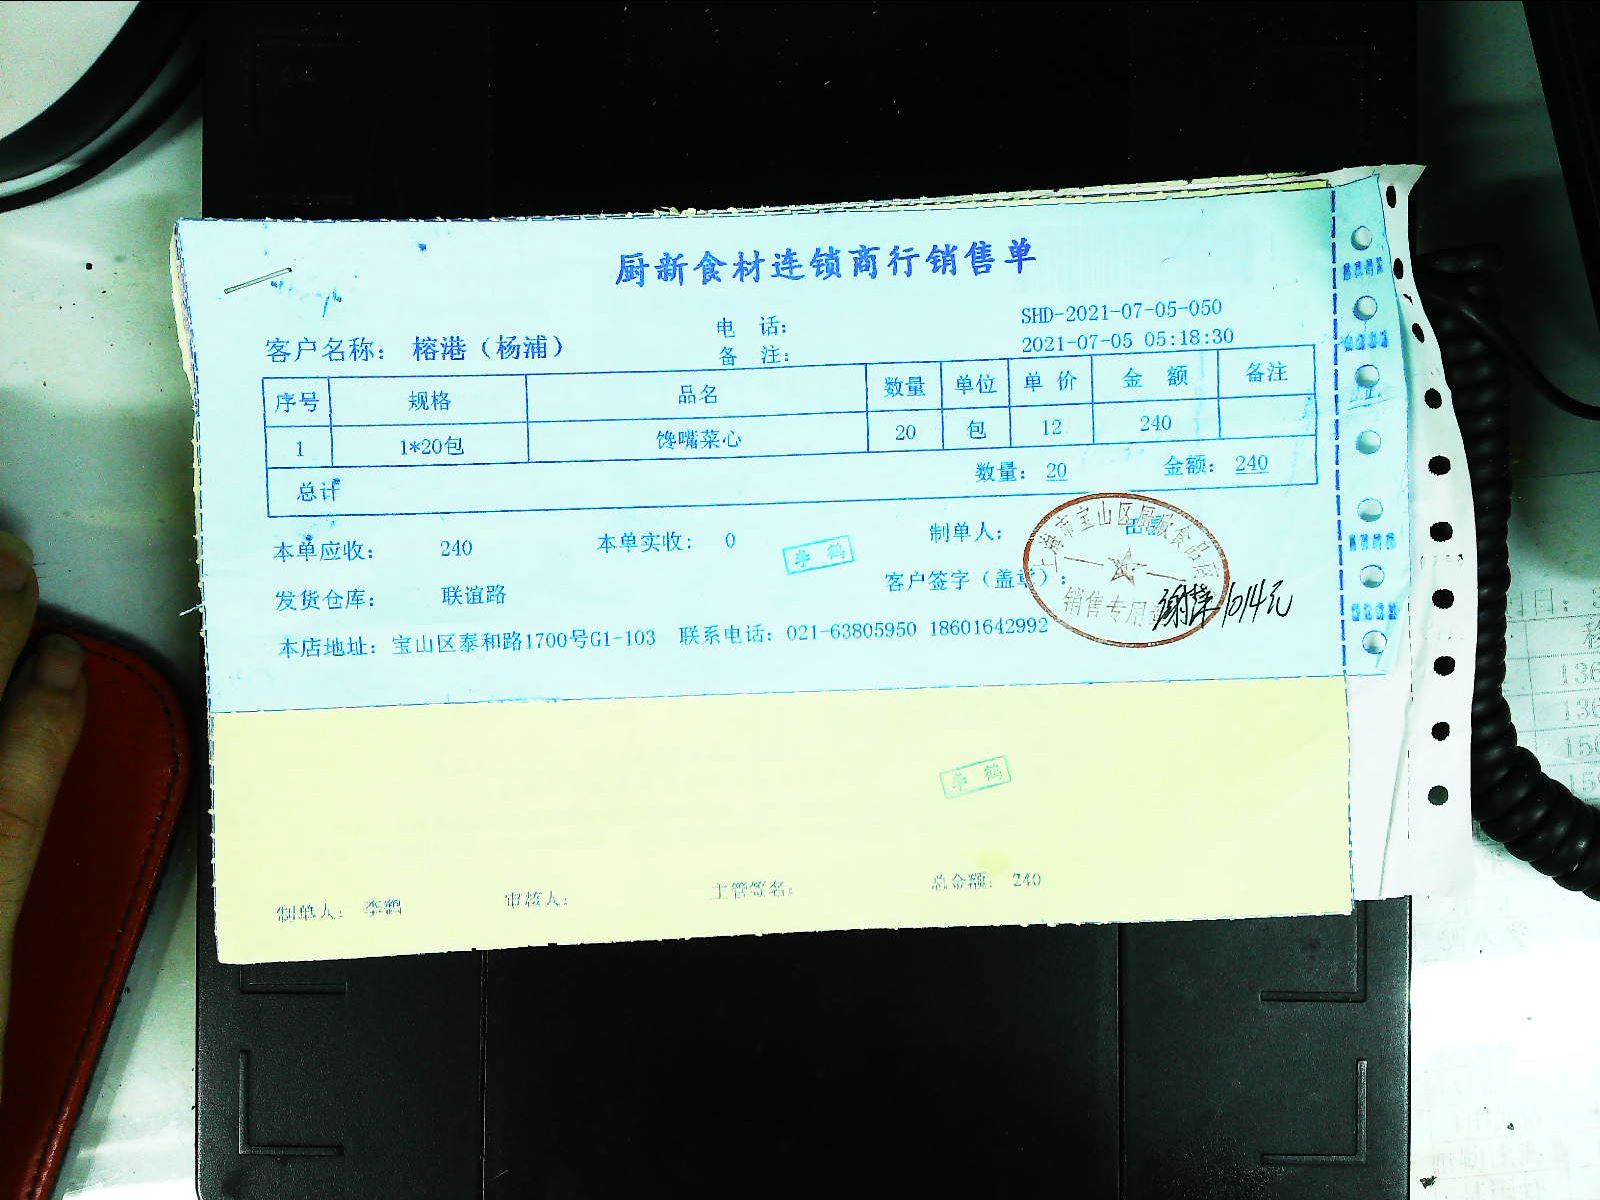 厨新食材连锁商行销售单
客户名称： 榕港（杨浦） 电 话： SHD-2021-07-05-050
备 注： 2021-07-05 05:18:30
序号 规格 品名 数量 单位 单 价 金 额 备注
1 1*20包 馋嘴菜心 20 包 12 240
总计 数量： 20 金额： 240
本单应收： 240 本单实收： 0 李鹤 制单人：
发货仓库： 联谊路 客户签字（盖章）：
上海市宝山区 食品商
销售专用章
1014元
本店地址： 宝山区泰和路1700号G1-103 联系电话：021-63805950 18601642992
李鹤
制单人： 李鹤 审核人： 主管签名： 总金额： 240